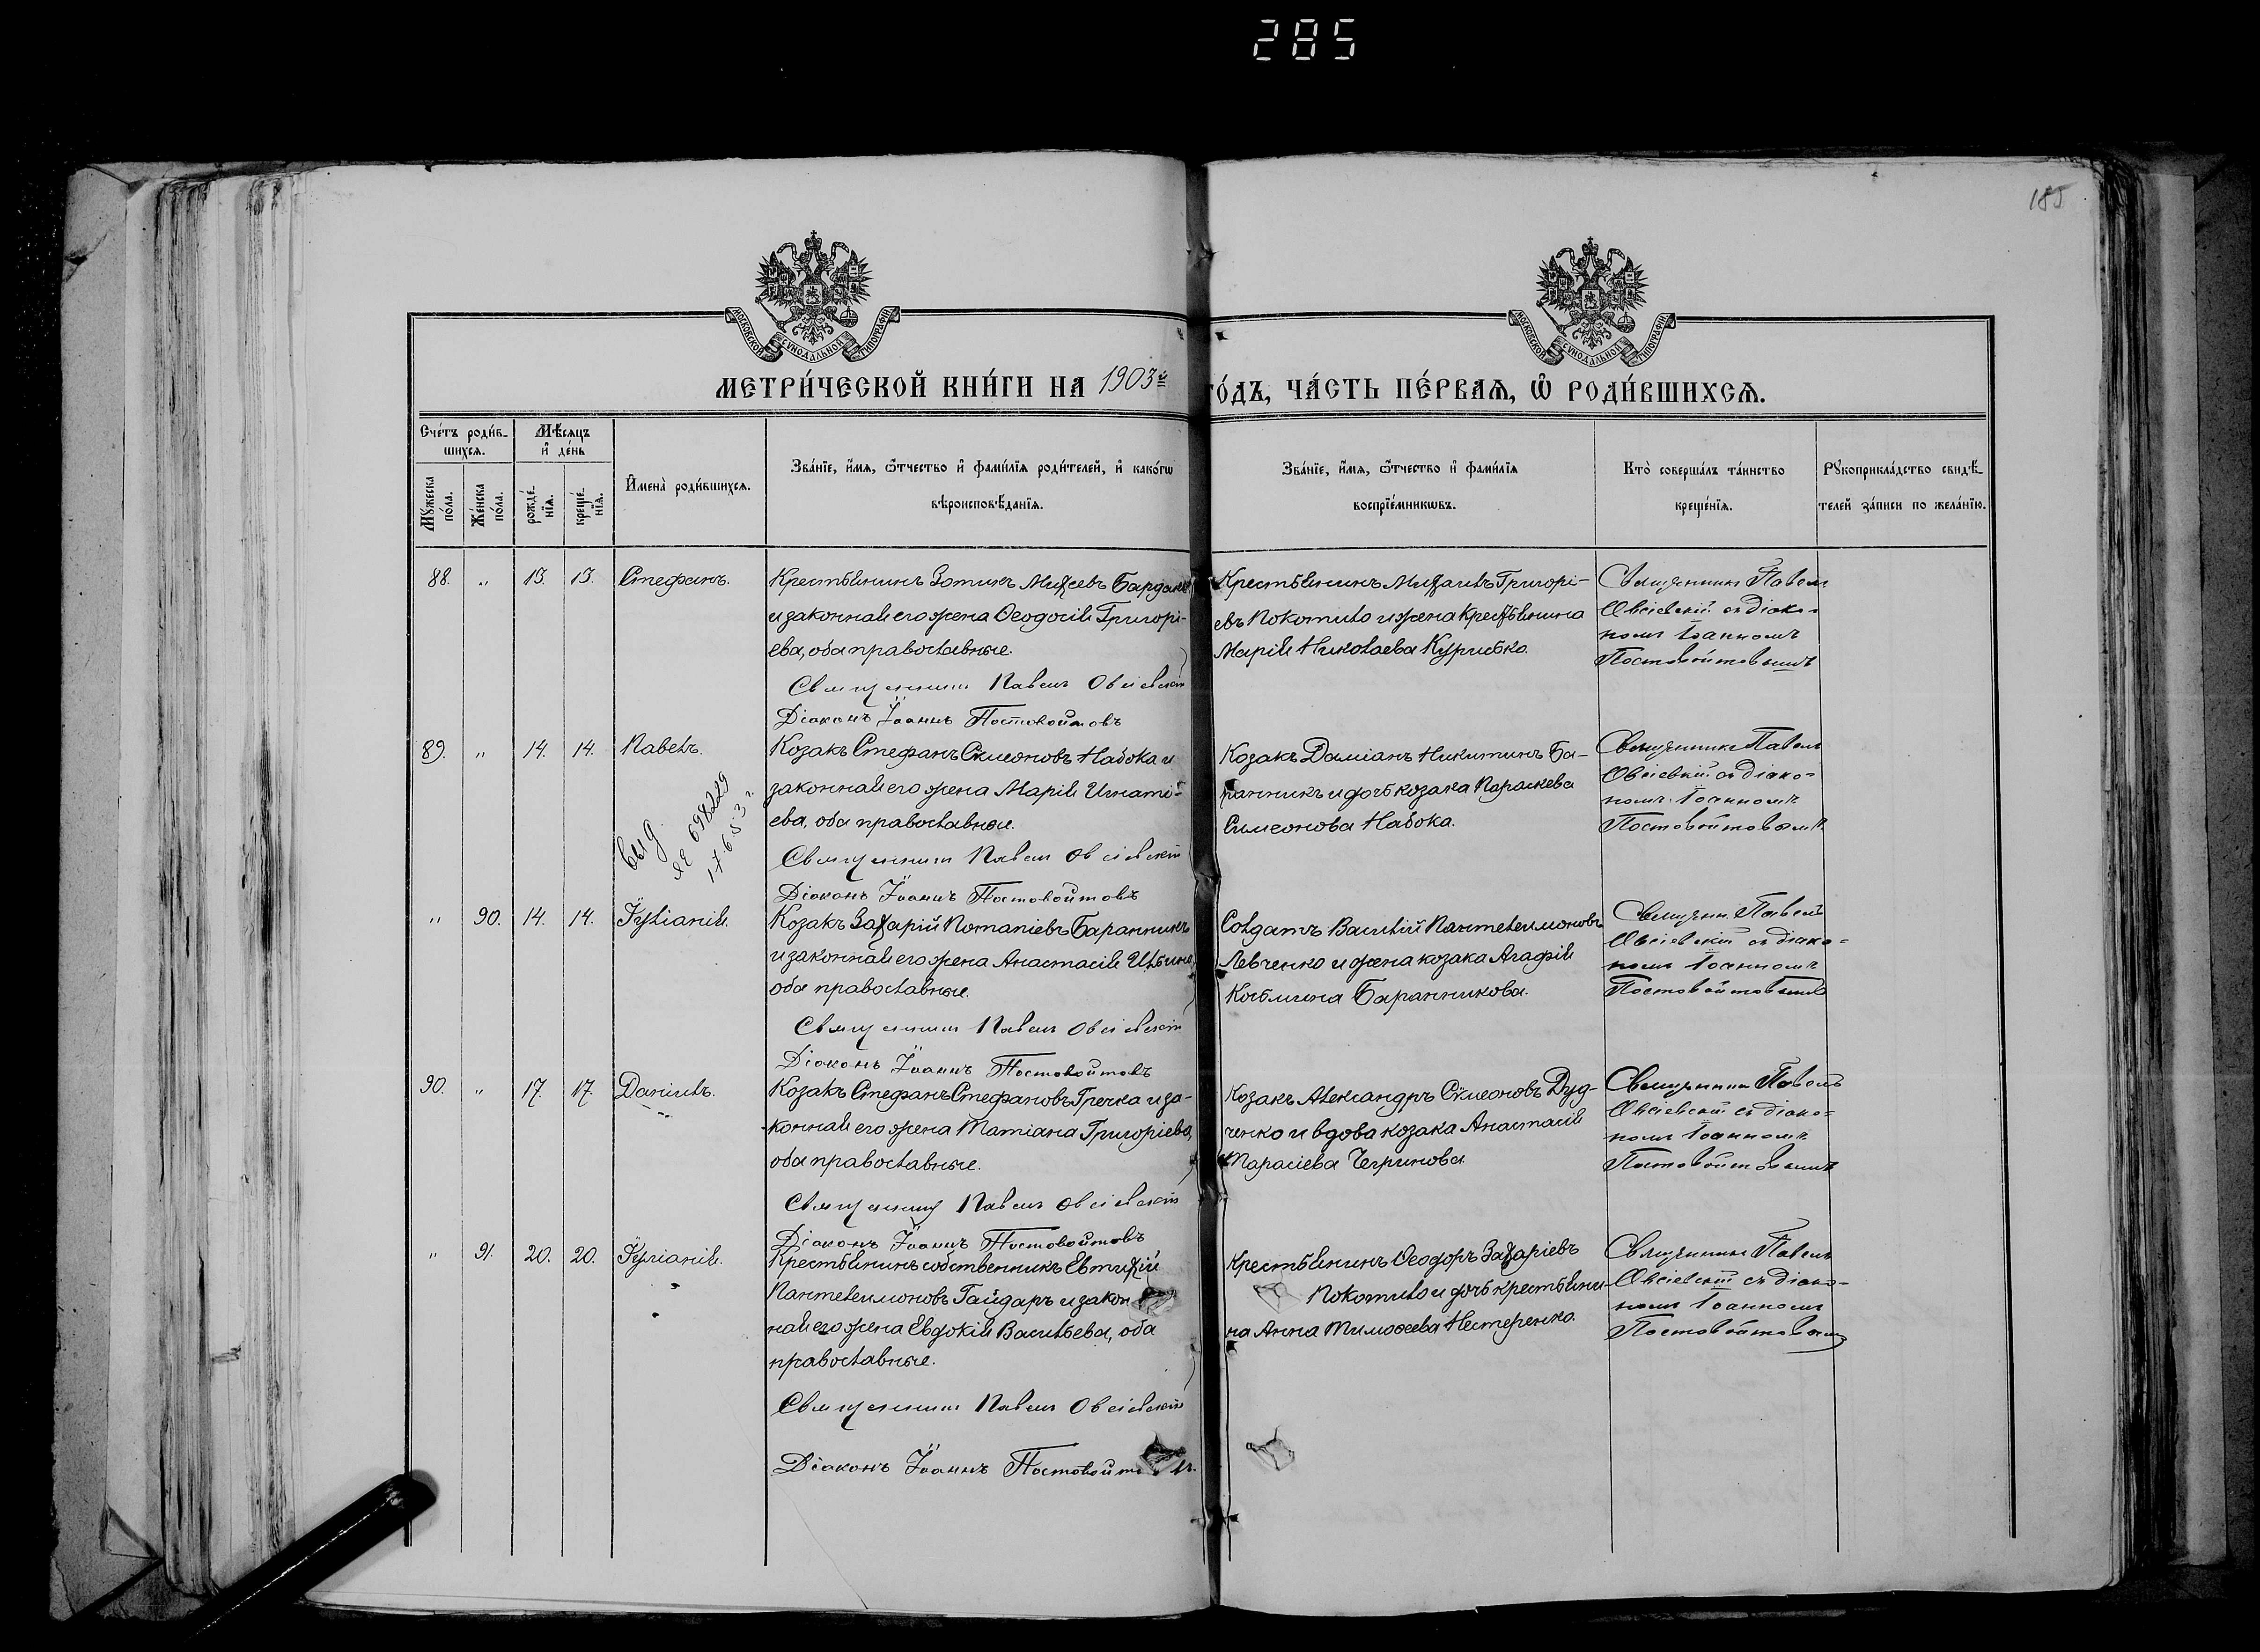 285
185
МОСКОВСКОЙ СѴНОДАЛЬНОЙ ТИПОГРАФІИ
МОСКОВСКОЙ СѴНОДАЛЬНОЙ ТИПОГРАФІИ
МЕТРИ́ЧЕСКОЙ КНИ́ГИ НА 1903й ГО́ДЪ, ЧА́СТЬ ПЕ́РВАѦ, Ѡ҆ РОДИ́ВШИХСѦ.
Сче́тъ роди́в-
шихсѧ.
Мꙋ́жеска по́ла.
Же́нска по́ла.
Мѣ́сѧцъ
и҆ де́нь
рожде́-
нїѧ.
креще́-
нїѧ.
И҆мена̀ роди́вшихсѧ.
Зва́нїе, и҆́мѧ, ѻ҆́тчество и҆ фами́лїѧ роди́телей, и҆ како́гѡ
вѣроисповѣ́данїѧ.
Зва́нїе, и҆́мѧ, ѻ҆́тчество и҆ фами́лїѧ
воспрїе́мникѡвъ.
Кто̀ соверша́лъ та́инство
креще́нїѧ.
Рꙋкоприкла́дство свидѣ́-
телей за́писи по жела́нїю.
88. „ 13. 13. Стефанъ.
Крестьянинъ Зотикъ Михеевъ
и законная его жена Ѳеодосія Григорі-
ева, оба православные.
Священникъ Павелъ Овсіевскій
Діаконъ Іоаннъ Постовойтовъ
Крестьянинъ Михаилъ Григорі-
евъ Покотило и жена крестьянина
Марія Николаева Курибко.
Священникъ Павелъ
Овсіевскій съ діако-
номъ Іоанномъ
Постовойтовымъ
89. „ 14. 14. Павелъ.
Выд.
ЯЕ 698229
17.6.53 г.
Козакъ Стефанъ Сѵмеоновъ Набока и
законная его жена Марія Игнаті-
ева, оба православные.
Священникъ Павелъ Овсіевскій
Діаконъ Іоаннъ Постовойтовъ
Козакъ Даміанъ Никитинъ Ба-
ранникъ и дочь козака Параскева
Симеонова Набока.
Священникъ Павелъ
Овсіевскій съ діако-
номъ Іоанномъ
Постовойтовымъ
„ 90. 14. 14. Іуліанія.
Козакъ Захарій Потапіевъ Баранникъ
и законная его жена Анастасія Ильина,
оба православные.
Священникъ Павелъ Овсіевскій
Діаконъ Іоаннъ Постовойтовъ
Солдатъ Василій Пантелеимоновъ
Левченко и жена козака Агафія
Косьмина Баранникова.
Священн. Павелъ
Овсіевскій съ діако-
номъ Іоанномъ
Постовойтовымъ
90. „ 17. 17. Даніилъ.
Козакъ Стефанъ Стефановъ Гречка и за-
конная его жена Татіана Григоріева,
оба православные.
Священникъ Павелъ Овсіевскій
Діаконъ Іоаннъ Постовойтовъ
Козакъ Александръ Сѵмеоновъ Дуд-
ченко и вдова козака Анастасія
Тарасіева Чегринова.
Священникъ Павелъ
Овсіевскій съ діако-
номъ Іоанномъ
Постовойтовымъ
„ 91. 20. 20. Іуліанія.
Крестьянинъ собственникъ Евтихій
Пантелеимоновъ Гайдаръ и закон
ная его жена Евдокія Васильева, оба
православные.
Священникъ Павелъ Овсіевскій
Діаконъ Іоаннъ Постовойтовъ.
Крестьянинъ Ѳеодоръ Захаріевъ
Покотило и дочь крестьяни-
на Анна Тимоѳеева Нестеренко.
Священникъ Павелъ
Овсіевскій съ діако-
номъ Іоанномъ
Постовойтовымъ